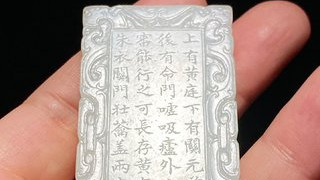 上有黃庭下有關元
後有命門噓吸廬外
審能行之可長存黃
朱衣關門壯籥蓋兩